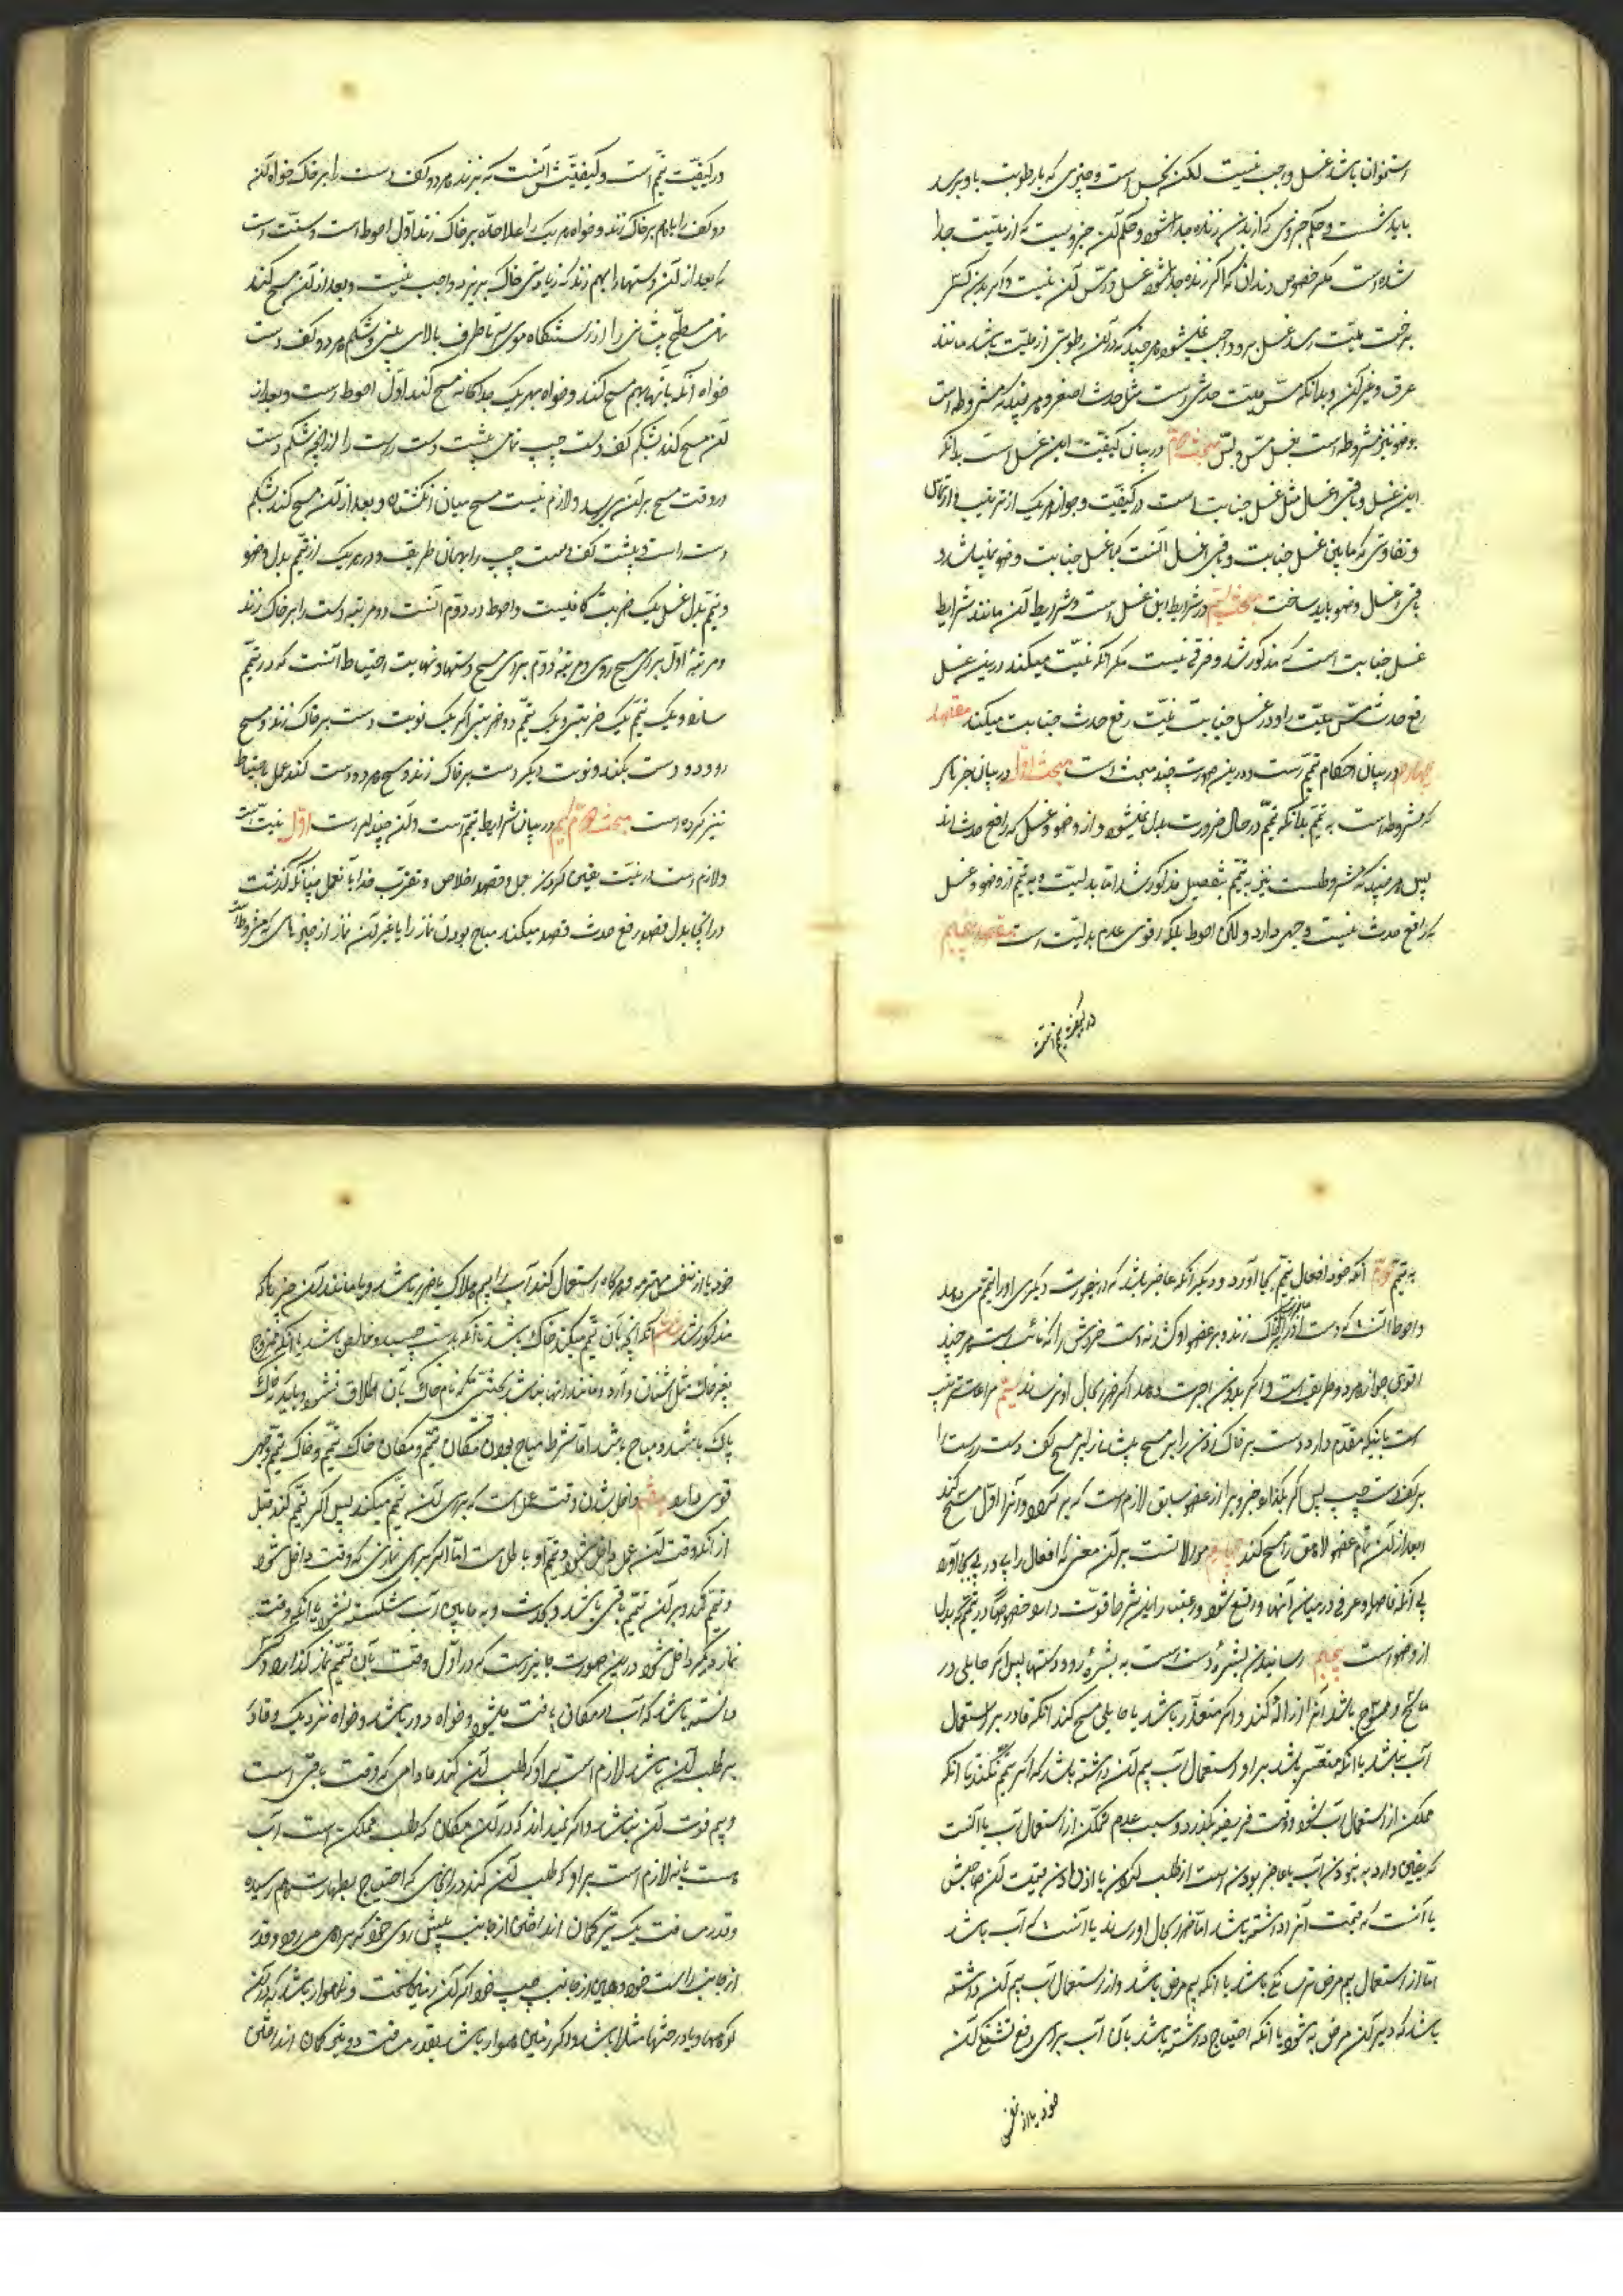 استخوان باشد غسل واجب نیست لکن نجس است و چیزی که با رطوبت باو برسد
باید شست و حکم جزوی که از بدن زنده جدا شود حکم آن جزویست که از میّت جدا
شده است مکر خصوص دندان که اکر از زنده جدا شود غسل در مسّ آن نیست و اکر بدن کسی
برخت میّت رسد غسل بر او واجب نمیشود هر چند که در آن رطوبتی از میّت باشد مانند
عرق و غیر آن و بدانکه مسّ میّت حدثی است مثل حدث اصغر و هر چیز که مشروطه است
بوضو نیز مشروطه است بغسل مسّ میّت مبحث دوّم در بیان کیفیّت این غسل است بدانکه
این غسل و باقی اغسال مثل غسل جنابت است در کیفیّت و جواز هر یک از ترتیب و ارتماس
و تفاوتی که ما بین غسل جنابت و باقی اغسال آنست که با غسل جنابت وضو نمیباشد و در
باقی اغسال وضو باید ساخت مبحث سیّم در شرایط این غسل است و شرایط آن مانند شرایط
غسل جنابت است که مذکور شد و فرقی نیست مکر آنکه نیّت میکند در این غسل
رفع حدث مسّ میّت را و در غسل جنابت نیّت رفع حدث جنابت میکند مقصد
چهارم در بیان احکام تیمّم است و در این صورت چند مبحث است مبحث اوّل در بیان چیزهائی
که مشروطه است به تیمّم بدانکه تیمّم در حال ضرورت بدل میشود از وضو و غسل که رافع حدث اند
پس هر چیز که مشروطست نیز به تیمّم بتفصیل مذکور شد امّا بدلیّت به تیمّم از وضو و غسل
که رافع حدث نیست وجهی دارد و لکن احوط بلکه اقوی عدم بدلیّت است مقصد پنجم
در کیفیّت تیمّم است
در کیفیّت تیمّم است و کیفیّتش آنست که بزند هر دو کف دست را بر خاک خواه آنکه
دو کف را باهم بر خاک زند و خواه هر یک را علاحدّه بر خاک زند اوّل احوط است و سنّت است
که بعد از آن دستها را بهم زند که زیادتی خاک بریزد و واجب نیست و بعد از آن مسح کند
تمام سطح پیشانی را از رستنکاه موی سر تا طرف بالای بینی بشکم هر دو کف دست
خواه آنکه بآنها بهم مسح کند و خواه بهر یک جداکانه مسح کند اوّل احوط است و بعد از
آن مسح کند بشکم کف دست چپ تمامی پشت دست راست را از آنچه شکم دست
در وقت مسح بر آن برسد و لازم نیست مسح میان انکشتان و بعد از آن مسح کند بشکم
دست راست پشت کف دست چپ را بهمان طریقه و در هر یک از تیمّم بدل وضو
و تیمّم بدل غسل یک ضربت کافیست و احوط در دوّم آنست دو مرتبه دست را بر خاک زند
و مرتبهٔ اوّل برای مسح روی و مرتبهٔ دوّم برای مسح دستها و نهایت احتیاط آنست که در تیمّم
سازد و یک تیمّم یک ضربتی و یک تیمّم دو ضربتی اکر یک نوبت دست بر خاک زند و مسح
رو و دو دست بکند و نوبت دیکر دست بر خاک زند و مسح هر دو دست کند عمل باحتیاط
نیز کرده است مبحث دوّم در بیان شرایط تیمّم است و آن چند امر است اوّل نیّت است
و لازم است در نیّت تعیین کردن عمل و قصد اخلاص و تقرّب خدا بآن عمل چنانکه کذشت
در اینجا بدل قصد رفع حدث قصد میکند مباح بودن نماز را یا غیر آن نماز از چیزهائی که مشروطست
به تیمّم دوّم آنکه خود افعال تیمّم بجا آورد و دیکر آنکه عاجز باشد که در اینصورت دیکری او را تیمّم می دهد
و احوط آنست که دست او را بر خاک زند و بر عضو او کشد نه دست خودش را که نائب است هر چند
اقوی جواز هر دو طریقه است و اکر بدون اجرت ندهد اکر ضرر بحال او نرساند سیّم مراعات ترتیب
است باینکه مقدّم دارد دست بر خاک زدن را بر مسح پیشانی را بر مسح کف دست راست را
بر کف دست چپ پس اکر بکذارد جزوی را از عضو سابق لازم است که بر کردد و آنرا اوّل مسح کند
و بعد از آن تمام عضو لاحق را مسح کند چهارم موالاتست بر آن معنی که افعال را پی در پی بجا آورد
بی آنکه فاصلهٔ عرفی در میان آنها واقع شود و رعایت این شرط قوّت دارد خصوصاً در تیمّم که بدل
از وضو است پنجم رسانیدن بشرهٔ دست است به بشرهٔ رو و دستها پس اکر حایلی در
ماسح و ممسوح باشد آنرا ازاله کند و اکر متعذّر باشد با حایلی مسح کند آنکه قادر بر استعمال
آب نباشد یا آنکه متعسّر باشد بر او استعمال آب بیم آن داشته باشد که اکر تیمّم نکند یا آنکه
ممکن از استعمال آب شود وقت فریضه بکذرد و سبب عدم تمکّن از استعمال آب یا آنست
که یقین دارد به نبودن آب یا عاجز بودن است از طلب کردن یا از دادن قیمت آن بصاحبش
یا آنست که قیمت آنرا داشته باشد امّا ضرر بحال او رساند یا آنست که آب باشد
امّا از استعمال بیم مرض ترسناکی باشد یا آنکه بیم مرض باشد و از استعمال آب بیم آن داشته
باشد که دیر آن مرض به شود یا آنکه احتیاج داشته باشد بآن آب برای رفع تشنکی آن
خود یا از نفس
خود یا از نفس محترمه و هر کاه استعمال کند آب را بیم هلاک یا ضرر باشد و یا مانند آن چیزها که
مذکور شد ششم آنکه آنچه بآن تیمّم میکند خاک باشد یا آنکه بدست چسپد و خالص باشد یا آنکه ممزوج
بغیر خاک مثل اشنان و آرد و مانند اینها نباشد بحیثیّتی که نام خاک بآن اطلاق نشود و باید که خاک
پاک باشد و مباح باشد امّا شرط مباح بودن مکان تیمّم و مکان خاک تیمّم و خاک تیمّم وجهی
قوی دارد هفتم داخل شدن وقت عمل است که برای آن تیمّم میکند پس اکر تیمّم کند قبل
از آنکه وقت آن عمل داخل شود تیمّم او باطل است امّا اکر برای نمازی که وقت داخل شود
و تیمّم کند و بر آن تیمّم باقی باشد و بحدث و به یافتن آب شکسته نشود یا آنکه وقت
نماز دیکر داخل شود در این صورت جایز است که در اوّل وقت بآن تیمّم نماز کذارد و کسی
دانسته باشد که آب در مکان یافت میشود و خواه دور باشد و خواه نزدیک و قادر
بر طلب آن باشد لازم است بر او که طلب آن کند مادامی که وقت باقی است
و بیم فوت آن نباشد و اکر نمیداند که در آن مکان که طلب ممکن است آب
هست یا نه لازم است بر او که طلب آن کند در انجائی که احتیاج بطهارت بهم رسیده
و قدر مسافت یک تیر کمان انداختن از جانب پیش روی خود که براهی می رود و قدر
از جانب راست خود و همین از جانب چپ خود اکر آن زمین سخت و ناهموار باشد که در آن
کوهها و یا درختها مثلا باشد و اکر زمین هموار باشد بقدر مسافت دو تیر کمان انداختن